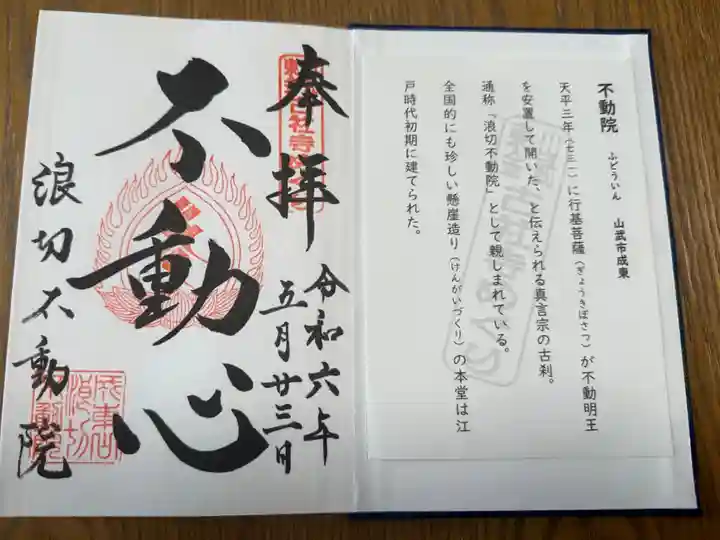 不動院 ふどういん 山武市成東
天平三年(七三一)に行基菩薩(ぎょうきぼさつ)が不動明王
を安置して開いた、と伝えられる真言宗の古刹。
通称「浪切不動院」として親しまれている。
全国的にも珍しい懸崖造り(けんがいづくり)の本堂は江
戸時代初期に建てられた。
奉拝
令和六年
五月廿三日
不動心
浪切不動院